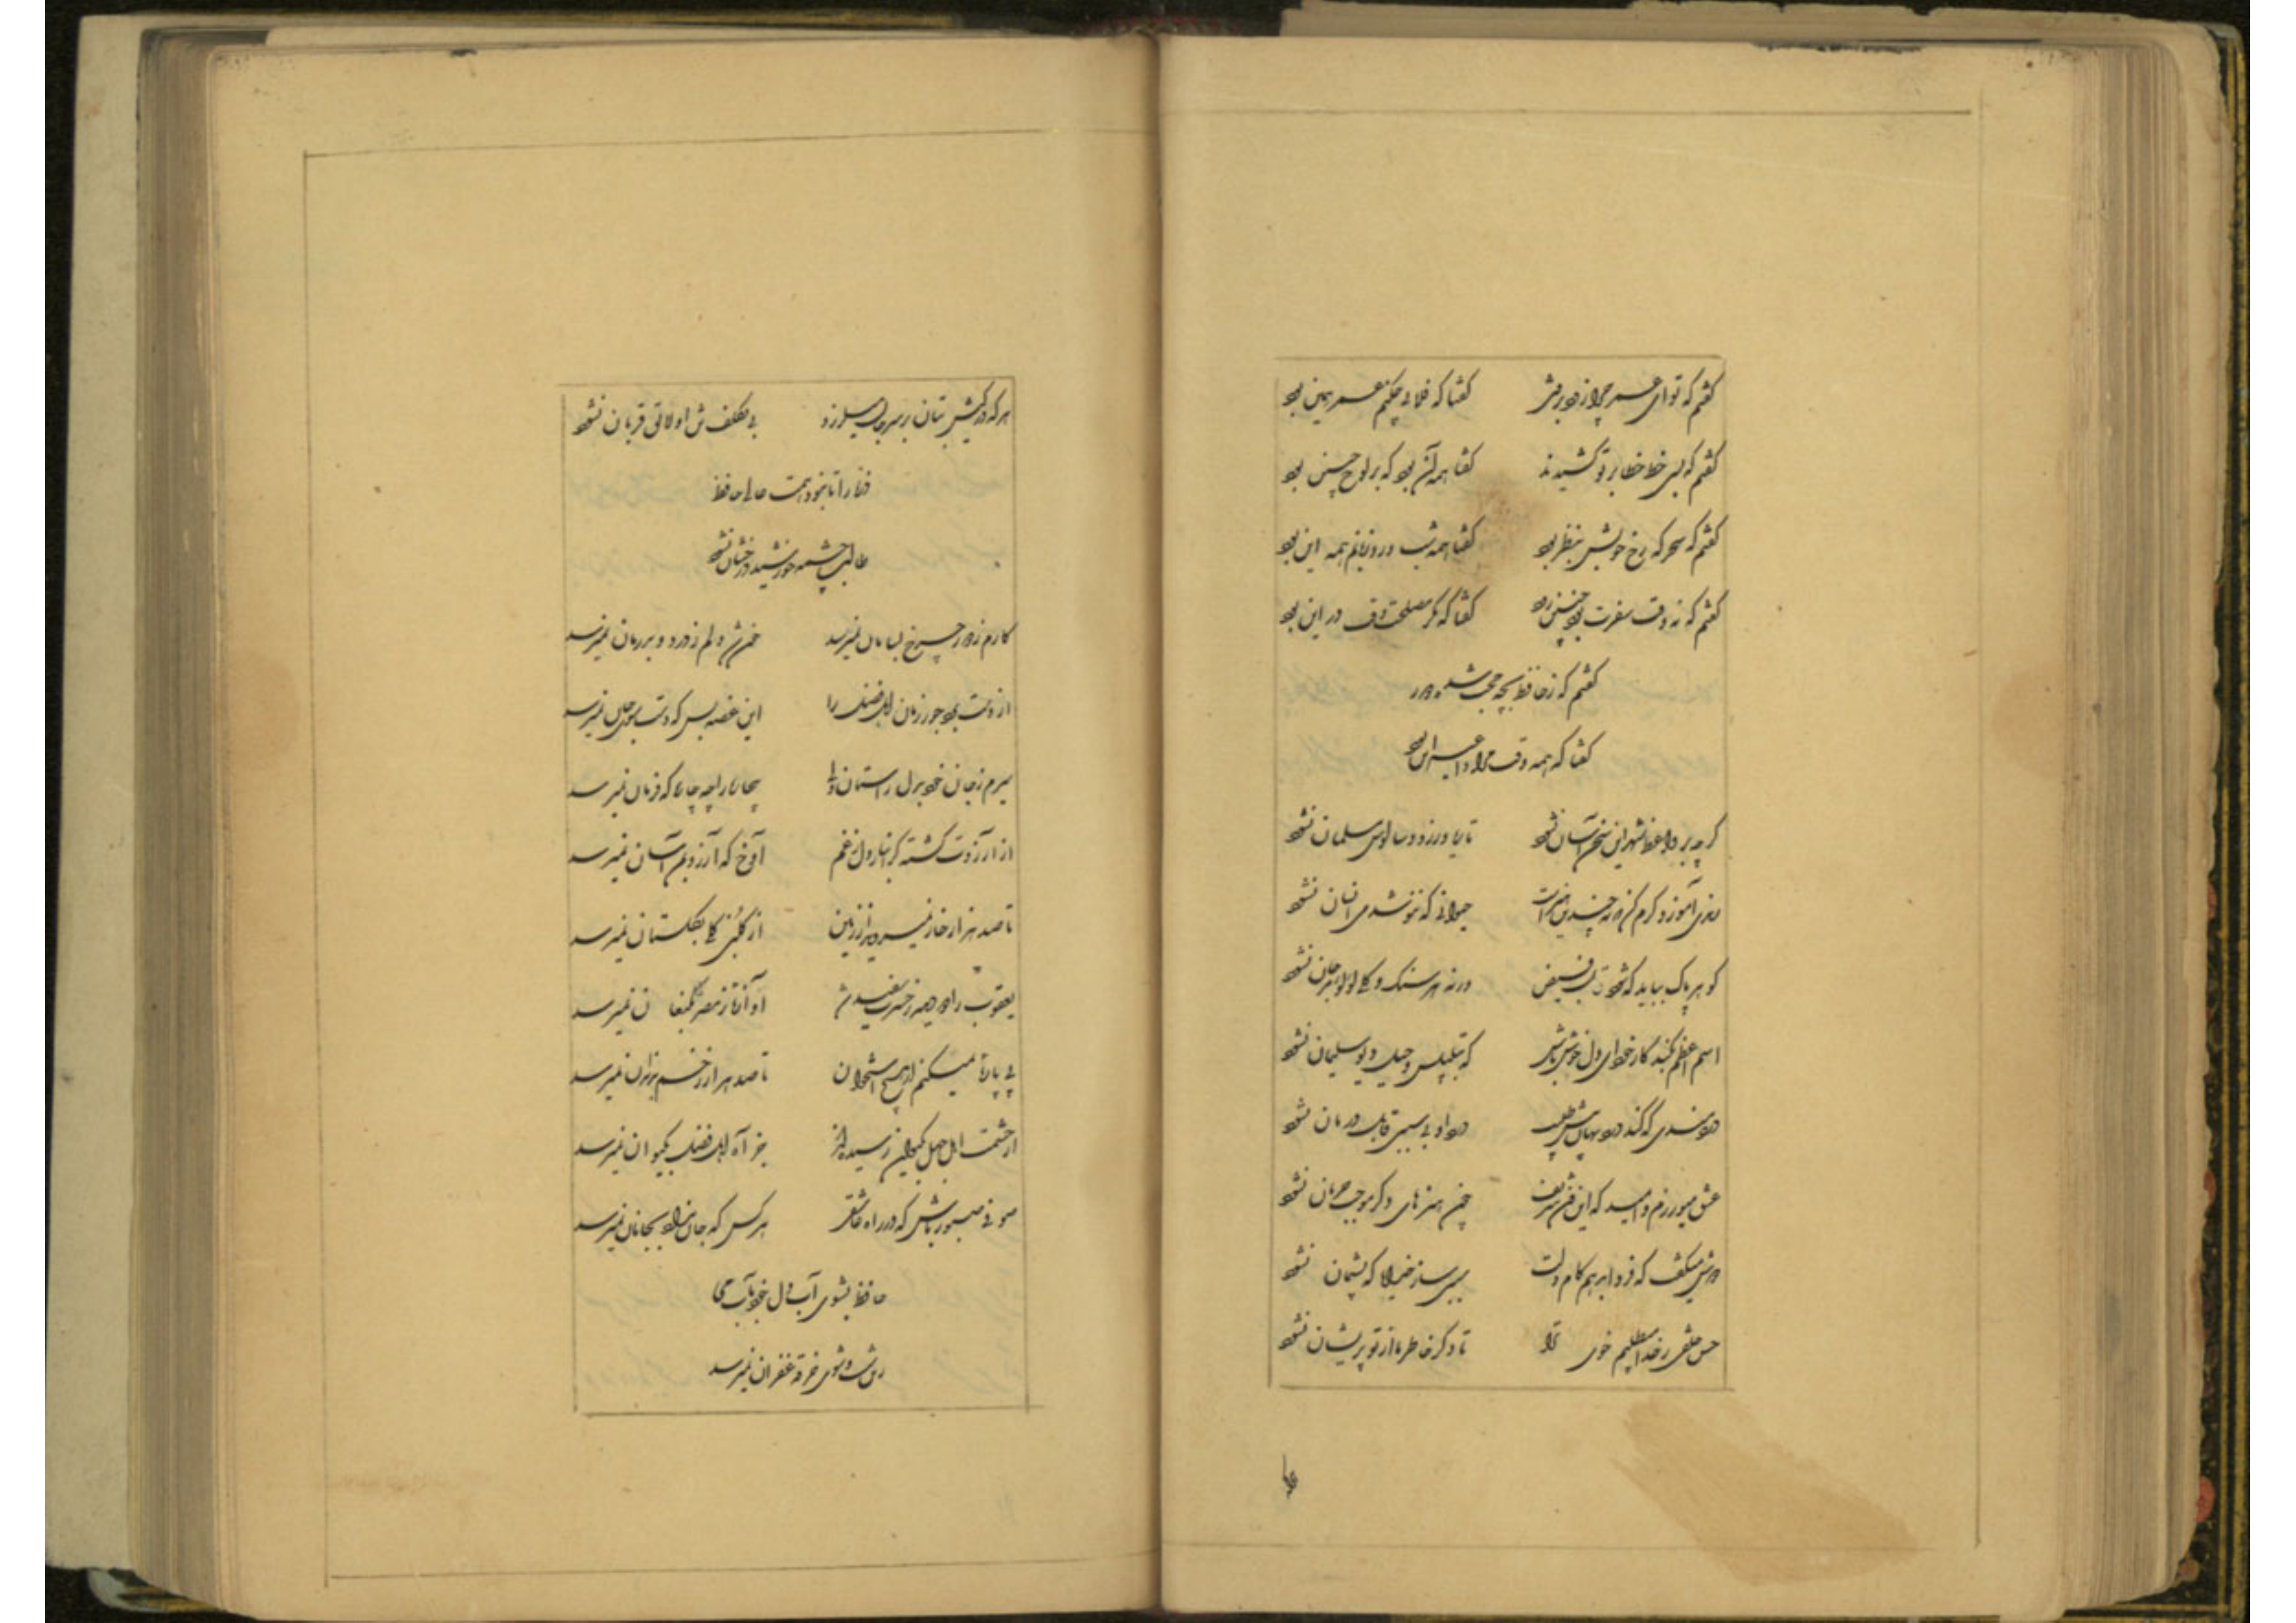 گفتم که توای عمر چرا زود برفتی گفتا که فلانی چکنم عمر همین بود
گفتم که بسی خط خطا بر تو کشیدند گفتا همه آن بود که بر لوح جبین بود
گفتم که سحرگه رخ خویش بنظر بود گفتا همه شب در و زبانم همه این بود
گفتم که نه وقت سفرت بود چنین زود گفتا که مگر مصلحت وقت در این بود
گفتم که ز حافظ بچه حجت شده دور
گفتا که همه وقت مرا داعیه این بود
گرچه بر واعظ شهر این سخن آسان نشود تا ریا ورزد و سالوس مسلمان نشود
رندی آموز و کرم کن که نه چندین هنر است حیوانی که ننوشد می و انسان نشود
گوهر پاک بباید که شود قابل فیض ورنه هر سنک و گلی لولو و مرجان نشود
اسم اعظم بکند کار خود ای دل خوش باش که بتلبیس و حیل دیو سلیمان نشود
دردمندی که کند درد نهان پیش طبیب درد او بی سببی قابل درمان نشود
عشق میورزم و امید که این فن شریف چون هنرهای دگر موجب حرمان نشود
دوش میگفت که فردا بدهم کام دلت سببی ساز خدایا که پشیمان نشود
حسن خلقی ز خدا میطلبم خوی ترا تا دگر خاطر ما از تو پریشان نشود
هر که در کیش بتان بر سر جان میلرزد بی تکلف تن او لایق قربان نشود
ذره را تا نبود همت عالی حافظ
طالب چشمه خورشید درخشان نشود
کارم ز دور چرخ بسامان نمیرسد خون شد دلم ز درد و بدرمان نمیرسد
از دست برد جور زمان اهل فضل را این غصه بس که دست سوی جان نمیرسد
سیرم ز جان خود بدل راستان ولی بیچاره را چه چاره که فرمان نمیرسد
از آرزوت گشته گرانبار دل ز غم آوخ که آرزویم آسان نمیرسد
تا صد هزار خار نمیروید از زمین از گلبنی گلی بگلستان نمیرسد
یعقوب را دو دیده ز حسرت سفید شد آوازه‌ از مصر بکنعان نمیرسد
پی پاره میکنم از هیچ استخوان تا صد هزار زخم بدندان نمیرسد
از حشمت اهل جهل بکیوان رسیده‌اند جز آه اهل فضل بکیوان نمیرسد
صوفی صبور باش که در راه عاشقی هر کس که جان نداد بجانان نمیرسد
حافظ بشوی آب دل خود بآب می
شست و شوی خرقه غفران نمیرسد